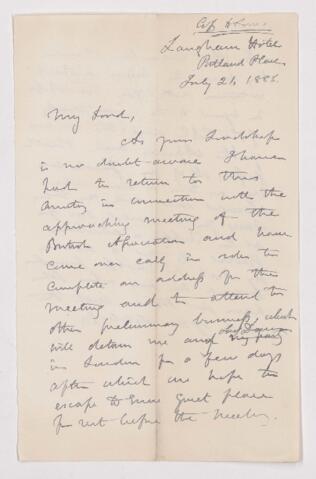 Langham Hotel
Portland Place
July 21, 1886.
My Lord,
As your Lordship
is no doubt aware I have
had to return to this
country in connection with the
approaching meeting of the
British Association and have
come over early in order to
complete an address for the
meeting and to attend to
other preliminary business, which
will detain me and my party
in London for a few days
after which we hope to
escape to some quiet place
for rest before the meeting.